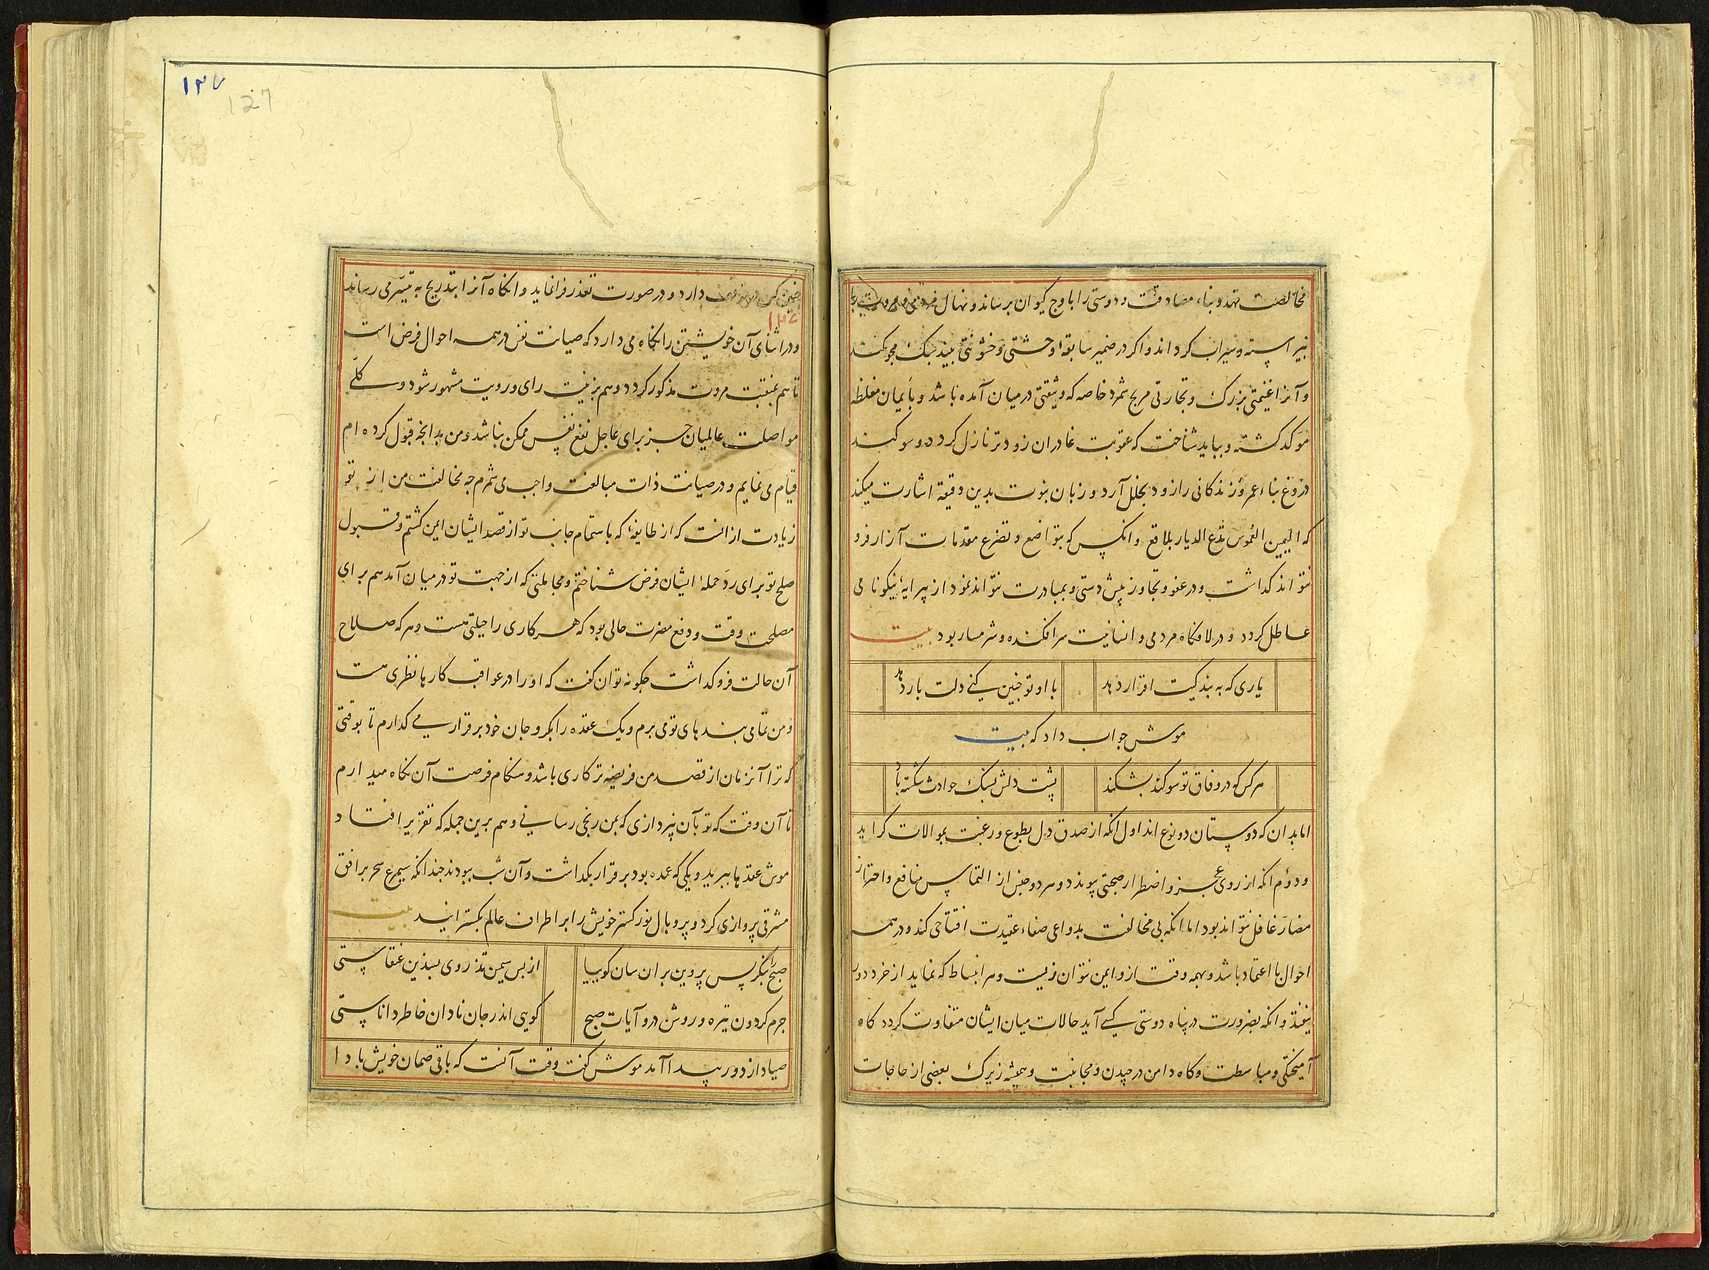 مخالصت نهد و بناء مصادقت و دوستی را باوج کیوان برساند و نهال
پیراسته و سیراب کرداند و اکر در ضمیر سابقه وحشتی و خشونتی بیند سبک محو کند
و آنرا غنیمتی بزرک و تجارتی مربح شمرد خاصه که وثیقتی در میان آمده باشد و بأیمان مغلظه
موکد کشته و بباید شناخت که عقوبت غادران زودتر نازل کردد و سوکند
دروغ بناء عمر و زندکانی را زود بخلل آرد و زبان نبوت بدین دقیقه اشارت میکند
که الیمین الغموس تدع الدیار بلاقع و انکس که بتواضع و تضرع مقدمات آزار فرو
نتواند کذاشت و در عفو و تجاوز پیش دستی و مبادرت نتواند نمود از پیرایه نیکونامی
عاطل کردد و در لافکاه مردمی و انسانیت سرافکنده و شرمسار بود بیت
یاری که به بندکیت اقرار دهد با او تو چنین کنی دلت بار دهد
موش جواب داد که بیت
هر کس که در وفاق تو سوکند بشکند پشت دلش بسنک حوادث شکسته باد
اما بدان که دوستان دو نوع اند اول انکه از صدق دل بطوع و رغبت بموالات کراید
و دوم انکه از روی عجز و اضطرار صحبتی پیوندد و هر دو جنس از التماس منافع و احتراز
مضار غافل نتواند بود اما انکه بی مخالفت بدواعی صفاء عقیدت افتتاحی کند در همه
احوال با اعتماد باشد و بهمه وقت ازو ایمن توان زیست و هر انبساط که نماید از خرد دور
نیفتد و انکه بضرورت در پناه دوستی کسی آید حالات میان ایشان متفاوت کردد کاه
آمیختکی و مباسطت و کاه دامن درچیدن و مجانبت و همیشه زیرک بعضی از حاجات
۱۲۷
127
دارد و در صورت تعذر فرا نماید و انکاه آنرا بتدریج به تیسر می رساند
۱۲۶
و در اثنای آن خویشتن را نکاه می دارد که صیانت نفس در همه احوال فرض است
تا هم بمنقبت مروت مذکور کردد و هم بزینت رای و رویت مشهور شود و کلی
مواصلت عالمیان جز برای عاجل نفع نفس ممکن نباشد و من بدانچه قبول کرده ام
قیام می نمایم و در صیانت ذات مبالغت واجب می شمرم چه مخالفت من از تو
زیادت از انست که از طایفه که باهتمام جانب تو از قصد ایشان ایمن کشتم و قبول
صلح تو برای رد حمله ایشان فرض شناختم و مجاملتی که از جهت تو در میان آمد هم برای
مصلحت وقت و دفع مضرت حالی بود که هر کاری را حیلتی هست و هر که صلاح
آن حالت فرو کداشت چکونه توان کفت که او را در عواقب کارها نظری هست
و من تمامی بندهای تو می برم و یک عقده را بکرو جان خود برقرار می کدارم تا بوقتی
که ترا آنزمان از قصد من فریضه تر کاری باشد و هنکام فرصت آن نکاه میدارم
تا آن وقت که تو بآن نپردازی که بمن رنجی رسانی و هم برین جمله که تقریر افتاد
موش عقدها ببرید و یکی که عمده بود برقرار بکداشت و آن شب ببودند چندانکه سیمرغ سحر بر افق
مشرقی پروازی کرد و پر و بال نور کستر خویش را بر اطراف عالم بکسترانید بیت
صبح را بنکر پس پروین بران سان کوییا از پس سیمین تذروی بسدین عنقاستی
جرم کردون تیره و روشن درو آیات صبح کویی اندر جان نادان خاطر داناستی
صیاد از دور پیدا آمد موش کفت وقت آنست که باقی ضمان خویش بادا